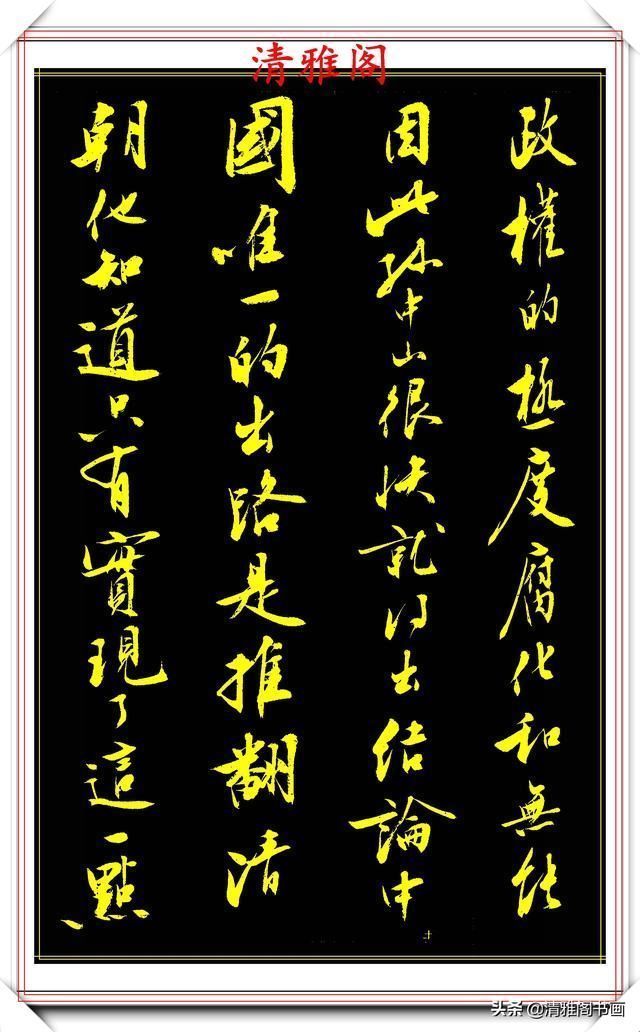 清雅阁
政權的極度腐化和無能
因此孙中山很快就得出結論中
國唯一的出路是推翻清
朝他知道只有實現了這一點
头条 @清雅阁书画